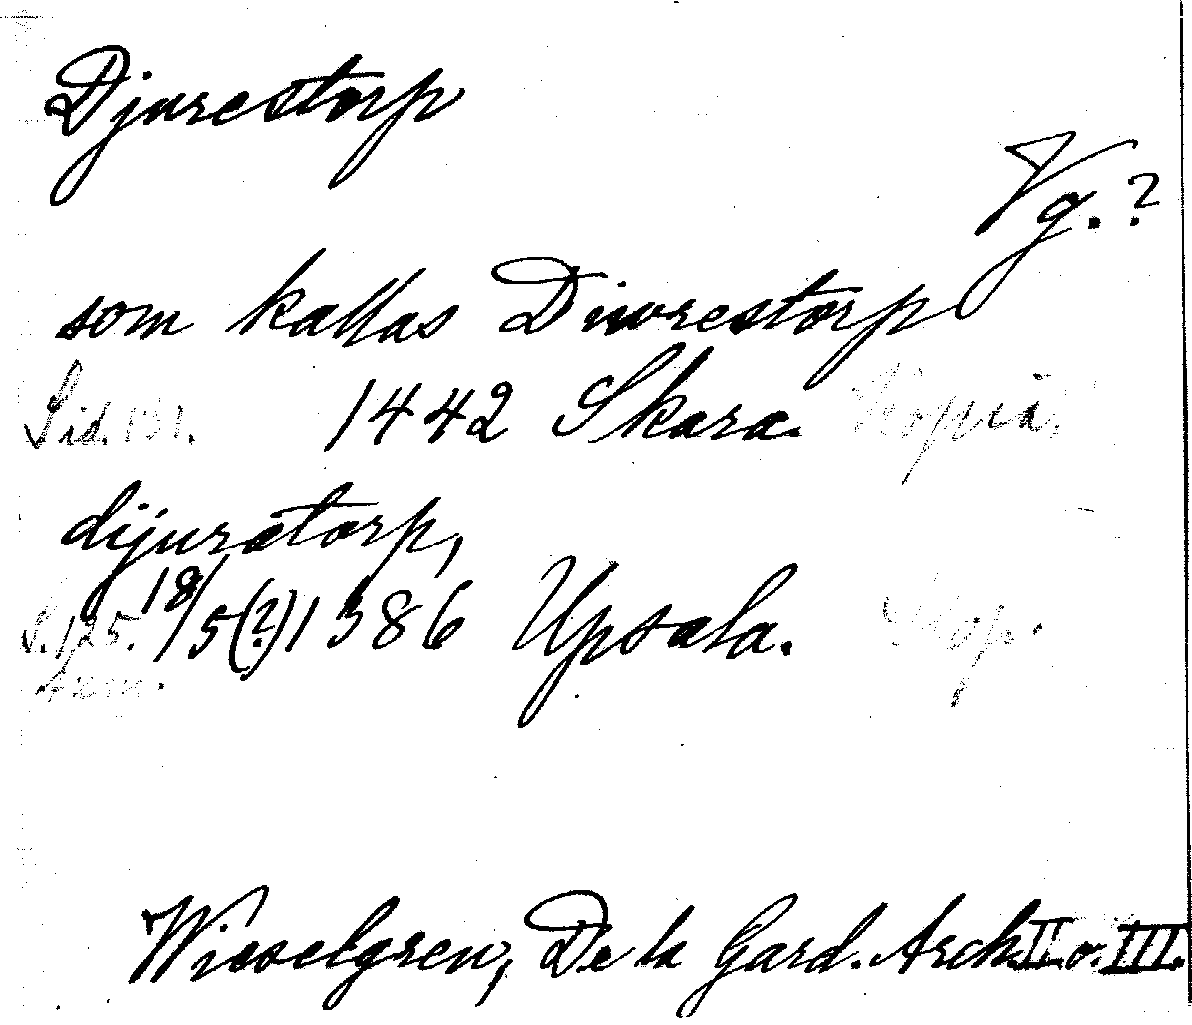 Djurestorp
Vg.?
som kallas Diwrestorp
Sid. 131. 1442 Skara. Kopia.
dijurstorp,
S. 125. 18/5(?) 1386 Upsala. Kop.
Wieselgren, De la Gard. Arch. II. o. III.